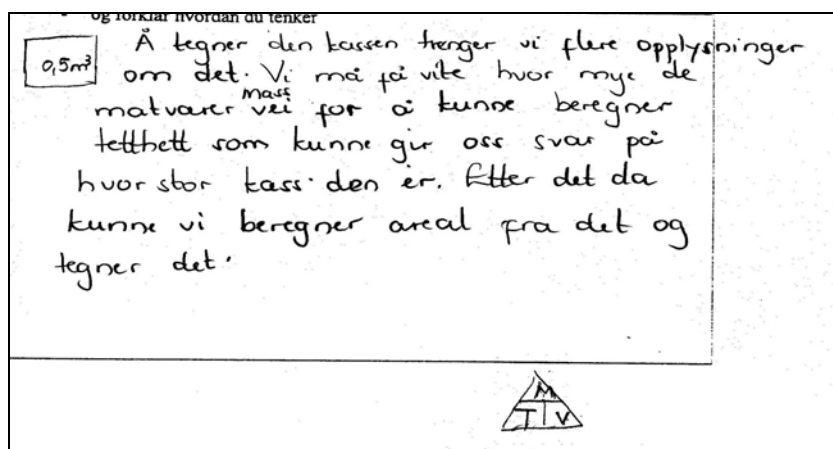 og forklar hvordan du tenker
0,5m³
Å tegner den kassen trenger vi flere opplysninger
om det. Vi må få vite hvor mye de
mass
matvarer vei for å kunne beregner
tetthett som kunne gir oss svar på
hvor stor kass den er. Etter det da
kunne vi beregner areal fra det og
tegner det.
M
T V